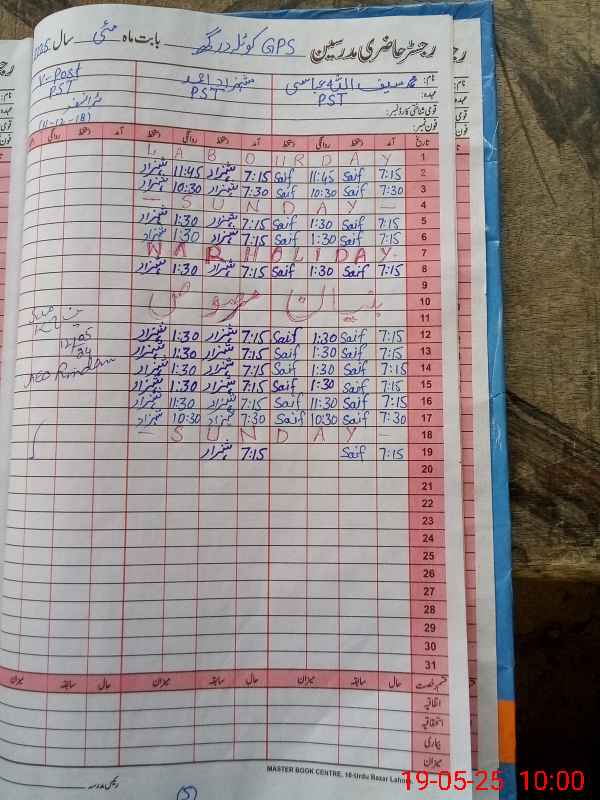 رجسٹر حاضری مدرسین GPS کوٹلہ درگھ بابت ماہ مئی سال 2025
نام: محمد سیف اللہ عباسی شہزاد احمد V-Post
عہدہ: PST PST PST
قومی شناختی کارڈ نمبر:
فون نمبر: (11-12-18)
تاریخ آمد دستخط روانگی دستخط آمد دستخط روانگی دستخط آمد دستخط روانگی
1 LABOUR DAY
2 7:15 Saif 11:45 Saif 7:15 شہزاد 11:45 شہزاد
3 7:30 Saif 10:30 Saif 7:30 شہزاد 10:30 شہزاد
4 — SUNDAY —
5 7:15 Saif 1:30 Saif 7:15 شہزاد 1:30 شہزاد
6 7:15 Saif 1:30 Saif 7:15 شہزاد 1:30 شہزاد
7 WAR HOLIDAY
8 7:15 Saif 1:30 Saif 7:15 شہزاد 1:30 شہزاد
9
10 بنیان مرصوص
11
12 7:15 Saif 1:30 Saif 7:15 شہزاد 1:30 شہزاد
13 7:15 Saif 1:30 Saif 7:15 شہزاد 1:30 شہزاد
14 7:15 Saif 1:30 Saif 7:15 شہزاد 1:30 شہزاد
15 7:15 Saif 1:30 Saif 7:15 شہزاد 1:30 شہزاد
16 7:15 Saif 11:30 Saif 7:15 شہزاد 11:30 شہزاد
17 7:30 Saif 10:30 Saif 7:30 شہزاد 10:30 شہزاد
18 — SUNDAY —
19 7:15 Saif 7:15 شہزاد
20
21
22
23
24
25
26
27
28
29
30
31
قسم رخصت حال سابقہ میزان حال سابقہ میزان حال سابقہ میزان
اتفاقیہ
استحقاقیہ
بیماری
میزان
MASTER BOOK CENTRE, 16-Urdu Bazar Lahore.
رئیس مدرسہ
(5)
19-05-25 10:00